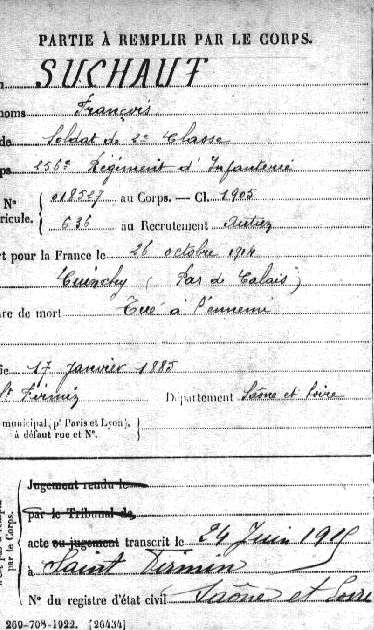 PARTIE À REMPLIR PAR LE CORPS.
SUCHAUT
noms François
de Soldat de 2e Classe
ps 256e Régiment d'Infanterie
N° 018527 au Corps. — Cl. 1905
ricule. 636 au Recrutement Autun
rt pour la France le 26 octobre 1914
Cuinchy (Pas de Calais)
re de mort Tué à l'ennemi
le 17 janvier 1885
St Firmin Département Saône et Loire
municipal, pr Paris et Lyon),
à défaut rue et N°.
Jugement rendu le
par le Tribunal de
acte ou jugement transcrit le 24 Juin 1915
à Saint Firmin
par le Corps.
N° du registre d'état civil Saône et Loire
269-708-1922. [26434]